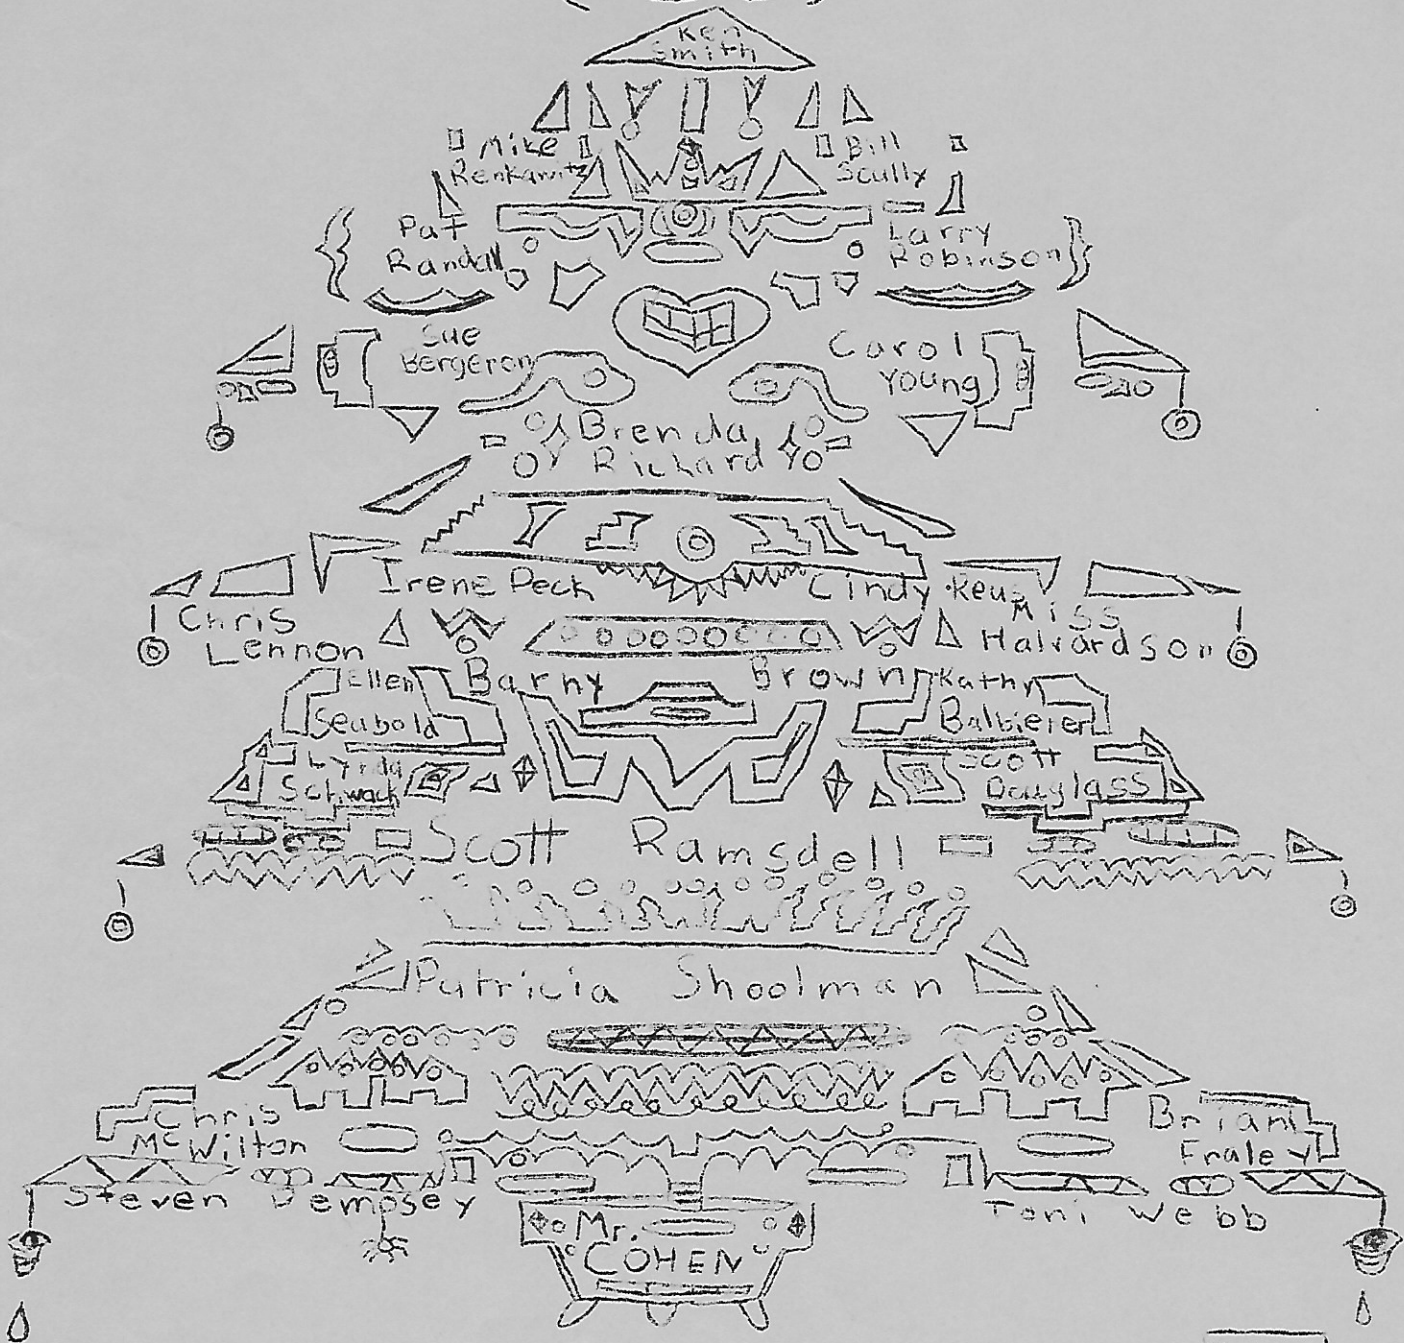 Ken
Smith
Mike
Renkawitz
Bill
Scully
Pat
Randall
Larry
Robinson
Sue
Bergeron
Carol
Young
Brenda
Richard
Irene Peck
Cindy Keus
Chris
Lennon
Miss
Halvardson
Barny Brown
Ellen
Seubold
Kathy
Balbierer
Lynda
Schwach
Scott
Douglass
Scott Ramsdell
Patricia Shoolman
Chris
McWilton
Brian
Fraley
Steven Dempsey
Toni Webb
Mr.
COHEN